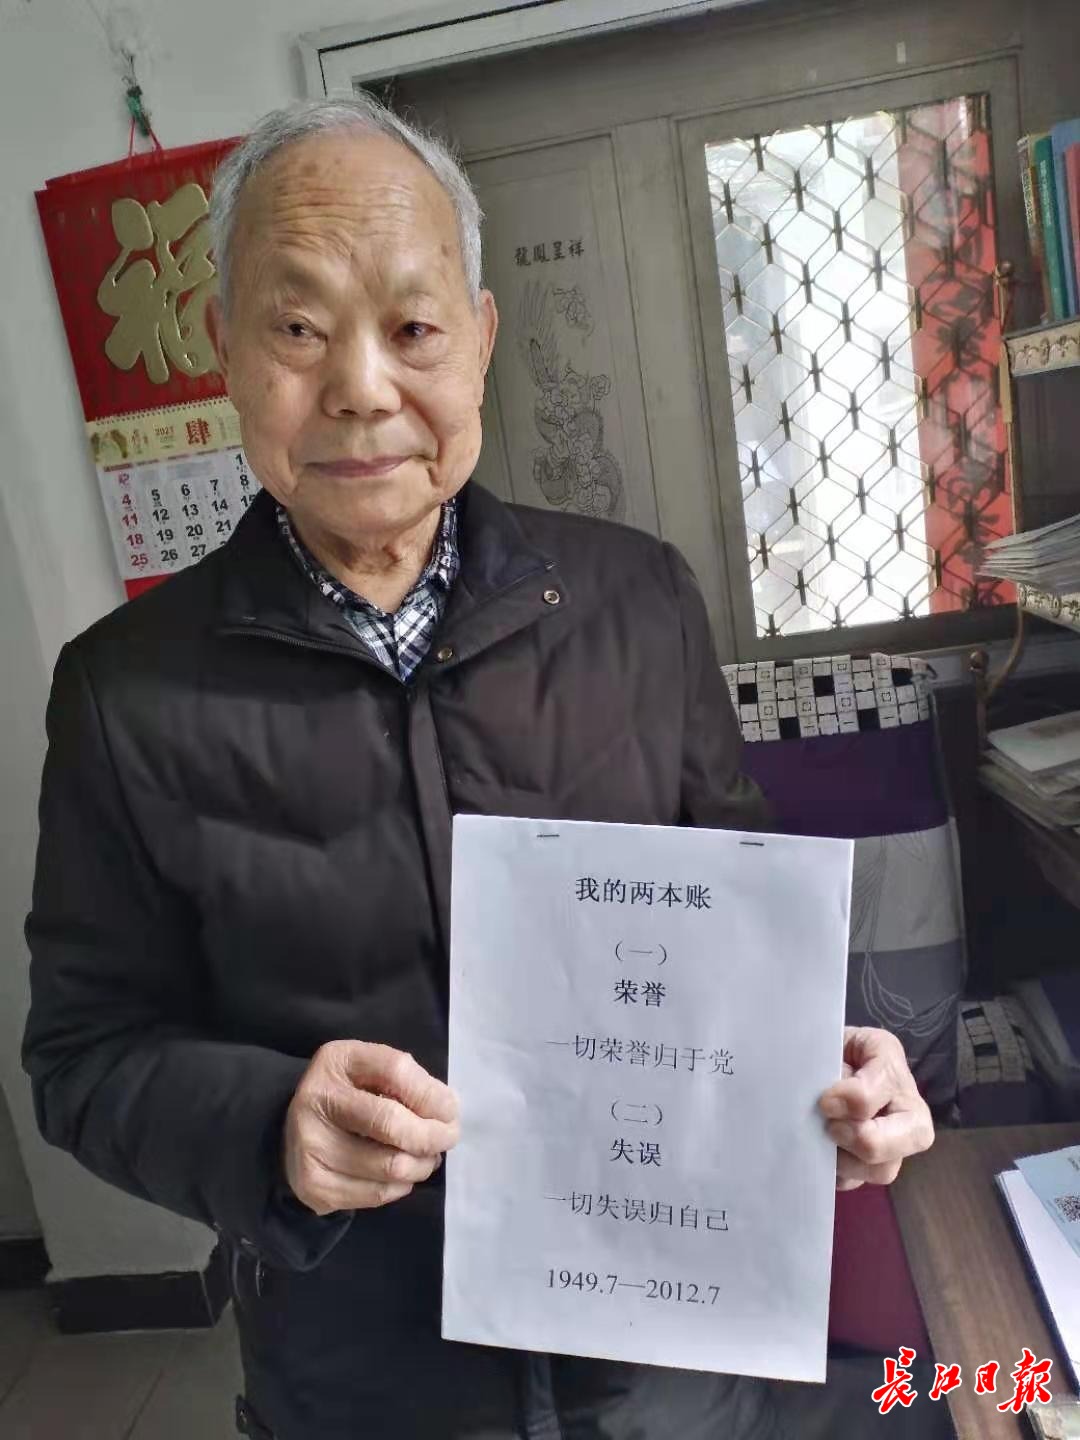 福
2021
1
4 5 6 7 8
11 12 13 14 15
18 19 20 21
25 26 27
龍鳳呈祥
我的两本账
（一）
荣誉
一切荣誉归于党
（二）
失误
一切失误归自己
1949.7—2012.7
长江日报